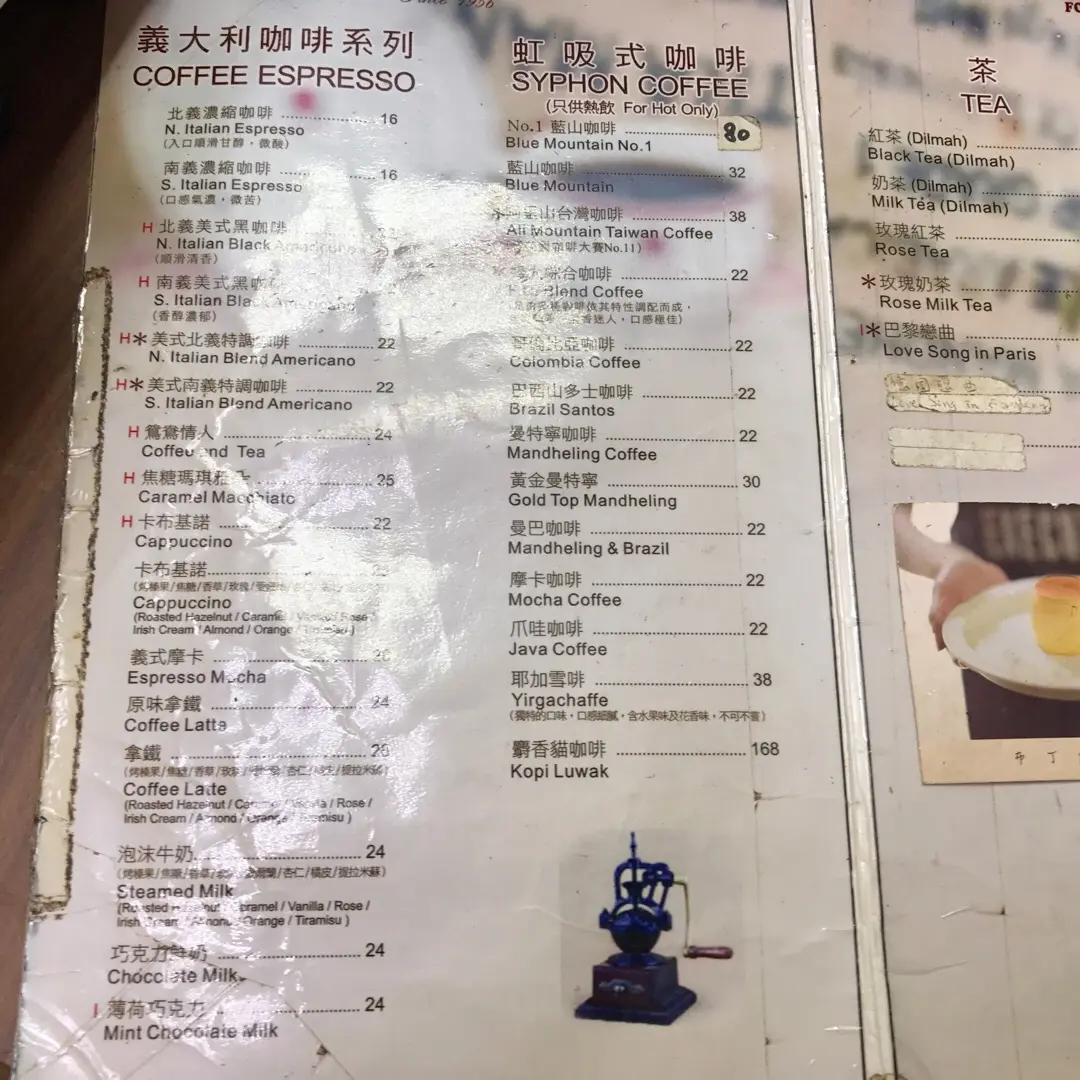 Since 1956
義大利咖啡系列
COFFEE ESPRESSO
北義濃縮咖啡 16
N. Italian Espresso
(入口順滑甘醇，微酸)
南義濃縮咖啡 16
S. Italian Espresso
(口感氣濃，微苦)
H 北義美式黑咖啡
N. Italian Black Americano
(順滑清香)
H 南義美式黑咖
S. Italian Black Americano
(香醇濃郁)
H* 美式北義特調咖啡 22
N. Italian Blend Americano
H* 美式南義特調咖啡 22
S. Italian Blend Americano
H 鴛鴦情人 24
Coffee and Tea
H 焦糖瑪琪雅朵 25
Caramel Macchiato
H 卡布基諾 22
Cappuccino
卡布基諾
Cappuccino
(Roasted Hazelnut / Caramel / Vanilla / Rose /
Irish Cream / Almond / Orange / Tiramisu )
義式摩卡 26
Espresso Mocha
原味拿鐵 24
Coffee Latte
拿鐵 26
Coffee Latte
(Roasted Hazelnut / Caramel / Vanilla / Rose /
Irish Cream / Almond / Orange / Tiramisu )
泡沫牛奶 24
Steamed Milk
(Roasted Hazelnut / Caramel / Vanilla / Rose /
Irish Cream / Almond / Orange / Tiramisu )
巧克力鮮奶 24
Chocolate Milk
I 薄荷巧克力 24
Mint Chocolate Milk
虹吸式咖啡
SYPHON COFFEE
(只供熱飲 For Hot Only)
No.1 藍山咖啡 80
Blue Mountain No.1
藍山咖啡 32
Blue Mountain
*阿里山台灣咖啡 38
Ali Mountain Taiwan Coffee
咖啡大賽No.11)
綜合咖啡 22
Blend Coffee
咖啡依其特性調配而成，
香迷人，口感極佳)
哥倫比亞咖啡 22
Colombia Coffee
巴西山多士咖啡 22
Brazil Santos
曼特寧咖啡 22
Mandheling Coffee
黃金曼特寧 30
Gold Top Mandheling
曼巴咖啡 22
Mandheling & Brazil
摩卡咖啡 22
Mocha Coffee
爪哇咖啡 22
Java Coffee
耶加雪啡 38
Yirgachaffe
(獨特的口味，口感細膩，含水果味及花香味，不可不嘗)
麝香貓咖啡 168
Kopi Luwak
FO
茶
TEA
紅茶 (Dilmah)
Black Tea (Dilmah)
奶茶 (Dilmah)
Milk Tea (Dilmah)
玫瑰紅茶
Rose Tea
*玫瑰奶茶
Rose Milk Tea
I*巴黎戀曲
Love Song in Paris
Love Song in
布丁